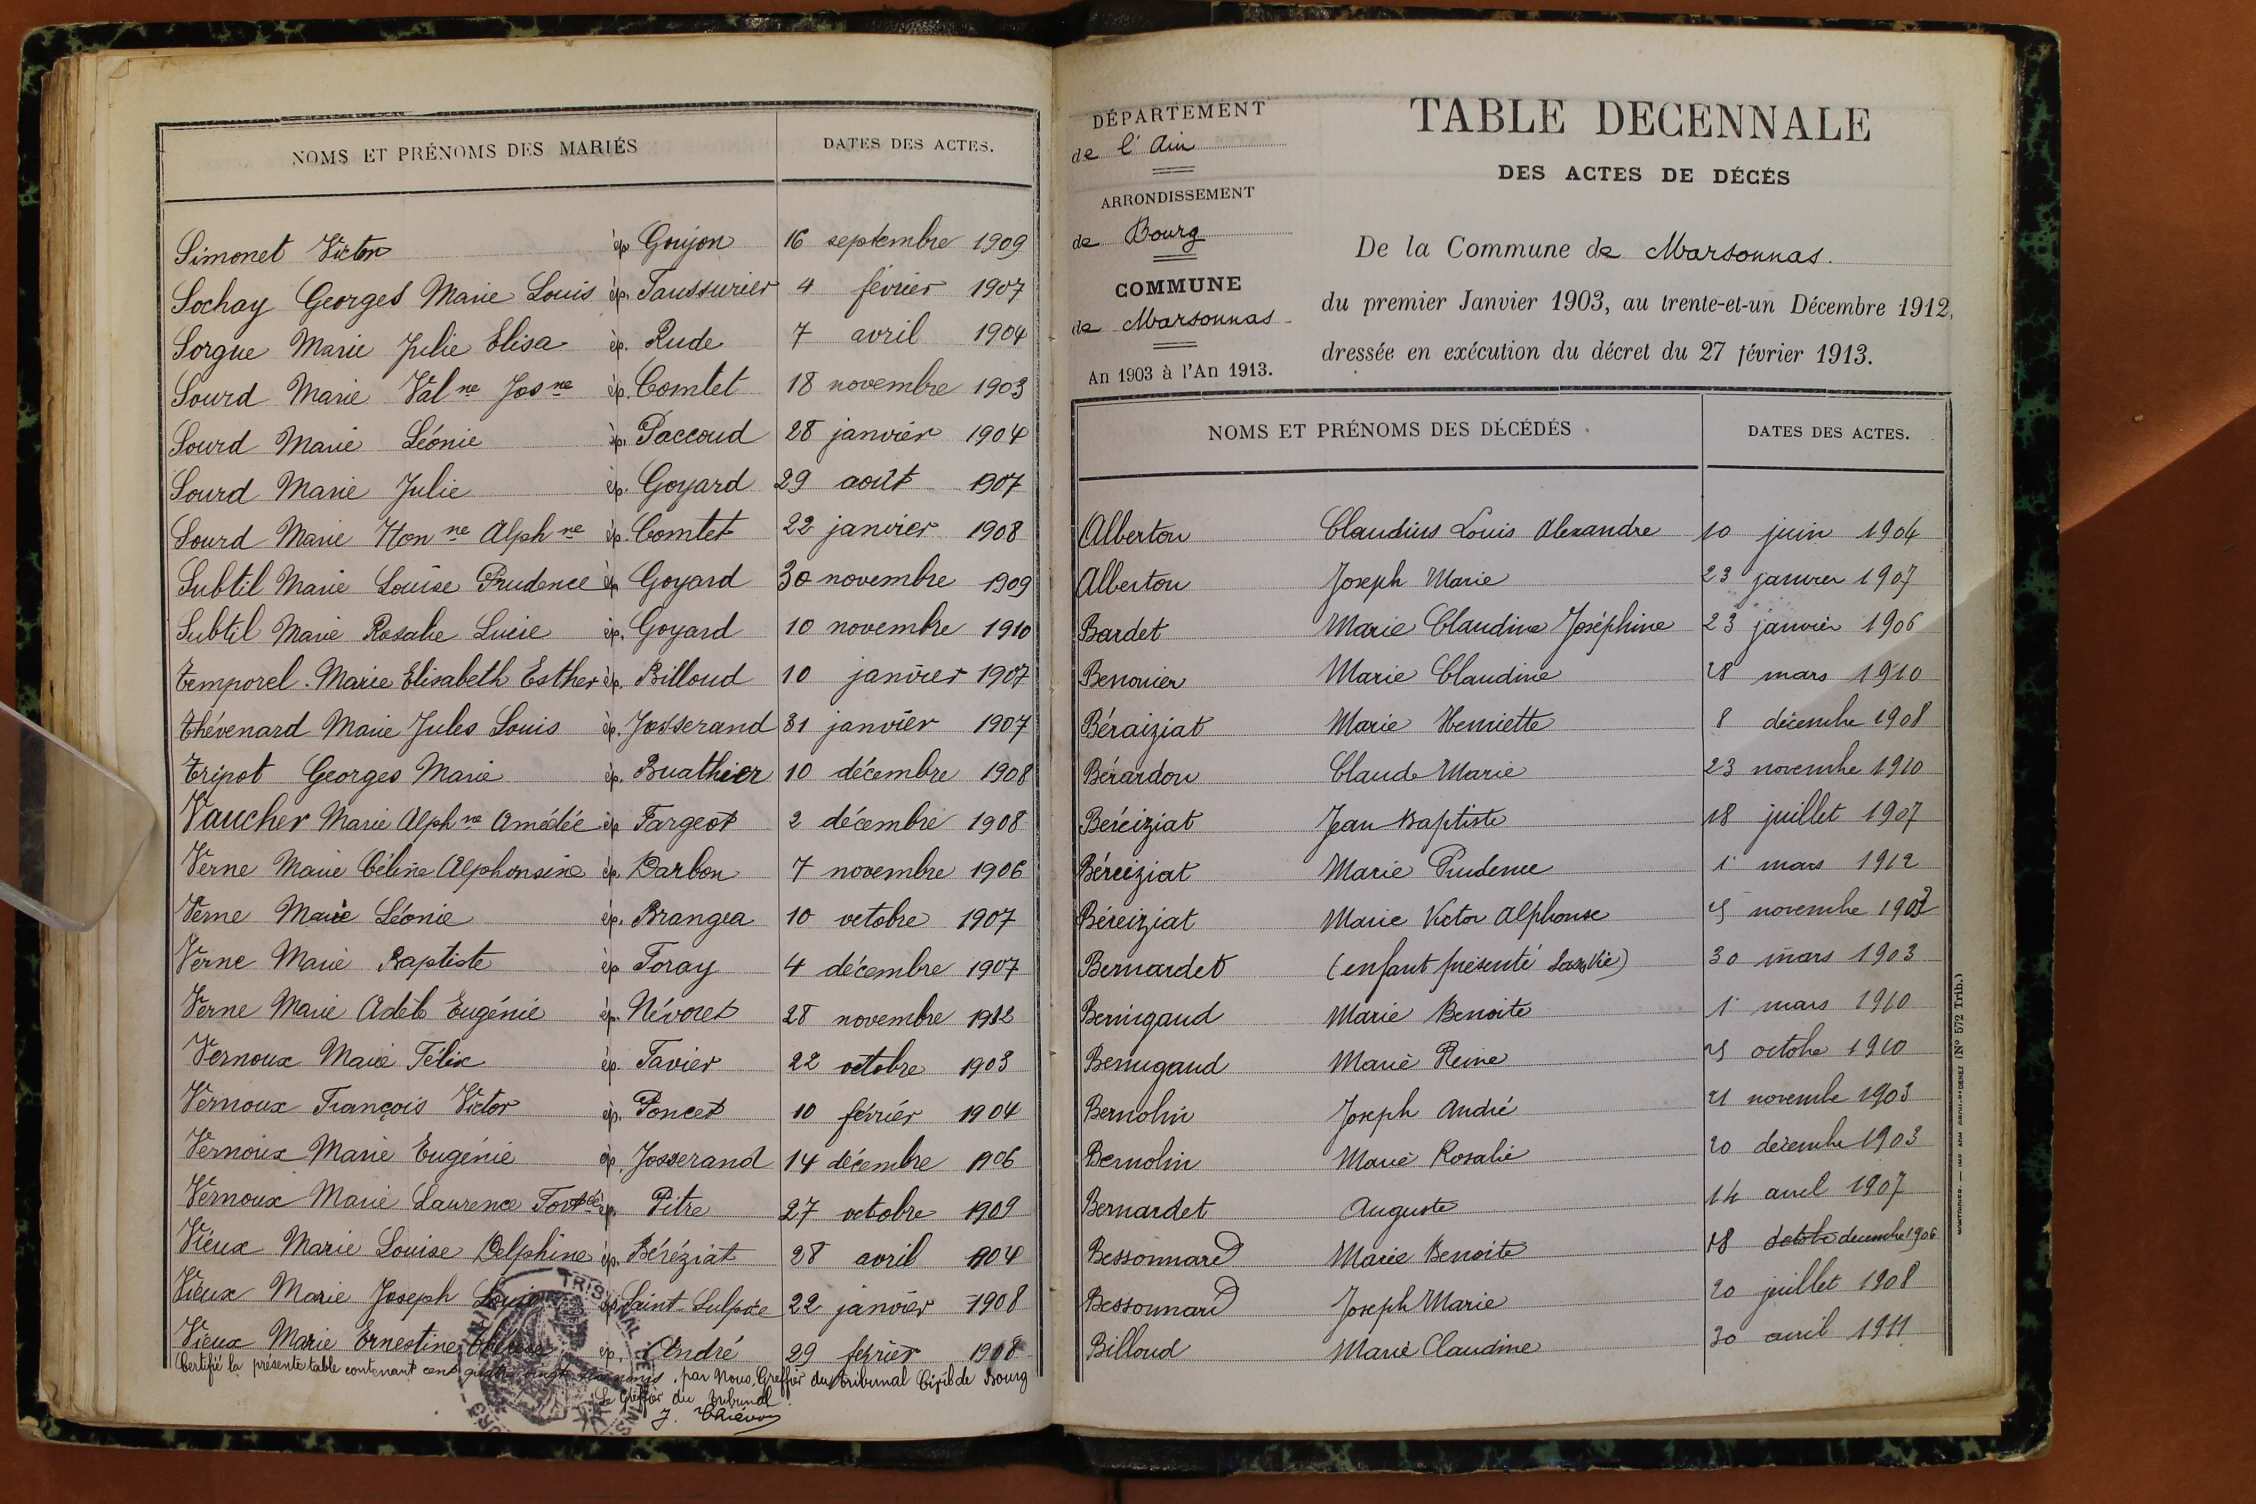 NOMS ET PRÉNOMS DES MARIÉS DATES DES ACTES.
Simonet Victor ép. Goujon 16 septembre 1909
Sochay Georges Marie Louis ép. Faussurier 4 février 1907
Sorgue Marie Julie Elisa ép. Rude 7 avril 1904
Sourd Marie Val ne Jos ne ép. Comtet 18 novembre 1903
Sourd Marie Léonie ép. Paccoud 28 janvier 1904
Sourd Marie Julie ép. Goyard 29 août 1907
Sourd Marie Hon ne Alph ne ép. Comtet 22 janvier 1908
Subtil Marie Louise Prudence ép. Goyard 30 novembre 1909
Subtil Marie Rosalie Lucie ép. Goyard 10 novembre 1910
Temporel Marie Elisabeth Esther ép. Billoud 10 janvier 1907
Thévenard Marie Jules Louis ép. Josserand 31 janvier 1907
Tripot Georges Marie ép. Buathier 10 décembre 1908
Vaucher Marie Alph ne Amédée ép. Fargeot 2 décembre 1908
Verne Marie Céline Alphonsine ép. Darbon 7 novembre 1906
Verne Marie Léonie ép. Brangea 10 octobre 1907
Verne Marie Baptiste ép. Foray 4 décembre 1907
Verne Marie Adèle Eugénie ép. Névoret 28 novembre 1912
Vernoux Marie Félix ép. Favier 22 octobre 1903
Vernoux François Victor ép. Poncet 10 février 1904
Vernoux Marie Eugénie ép. Josserand 14 décembre 1906
Vernoux Marie Laurence ép. Pitre 27 octobre 1909
Vieux Marie Louise Delphine ép. Béréziat 28 avril 1904
Vieux Marie Joseph Louis ép. Saint-Sulpice 22 janvier 1908
Vieux Marie Ernestine ép. André 29 février 1908
Certifié la présente table contenant cent quatre vingt noms, par Nous, Greffier du Tribunal Civil de Bourg
Le Greffier du Tribunal
DÉPARTEMENT
de l'Ain
ARRONDISSEMENT
de Bourg
COMMUNE
de Marsonnas
An 1903 à l'An 1913.
TABLE DECENNALE
DES ACTES DE DÉCÉS
De la Commune de Marsonnas.
du premier Janvier 1903, au trente-et-un Décembre 1912,
dressée en exécution du décret du 27 février 1913.
NOMS ET PRÉNOMS DES DÉCÉDÉS DATES DES ACTES.
Alberton Claudius Louis Alexandre 10 juin 1904
Alberton Joseph Marie 23 janvier 1907
Bardet Marie Claudine Joséphine 23 janvier 1906
Benonier Marie Claudine 28 mars 1910
Béraiziat Marie Henriette 8 décembre 1908
Bérardon Claude Marie 23 novembre 1910
Béreiziat Jean Baptiste 18 juillet 1907
Béreiziat Marie Prudence 1 mars 1912
Béreiziat Marie Victor Alphonse novembre
Bernardet (enfant présenté sans vie) 30 mars 1903
Bernigaud Marie Benoite 1 mars 1910
Bernigaud Marie Reine octobre 1910
Bernolin Joseph André 21 novembre 1903
Bernolin Marie Rosalie 20 décembre 1903
Bernardet Auguste 14 avril 1907
Bessonnard Marie Benoite 18 decembre 1906
Bessonnard Joseph Marie 20 juillet 1908
Billoud Marie Claudine 30 avril 1911
(N° 572 Trib.)